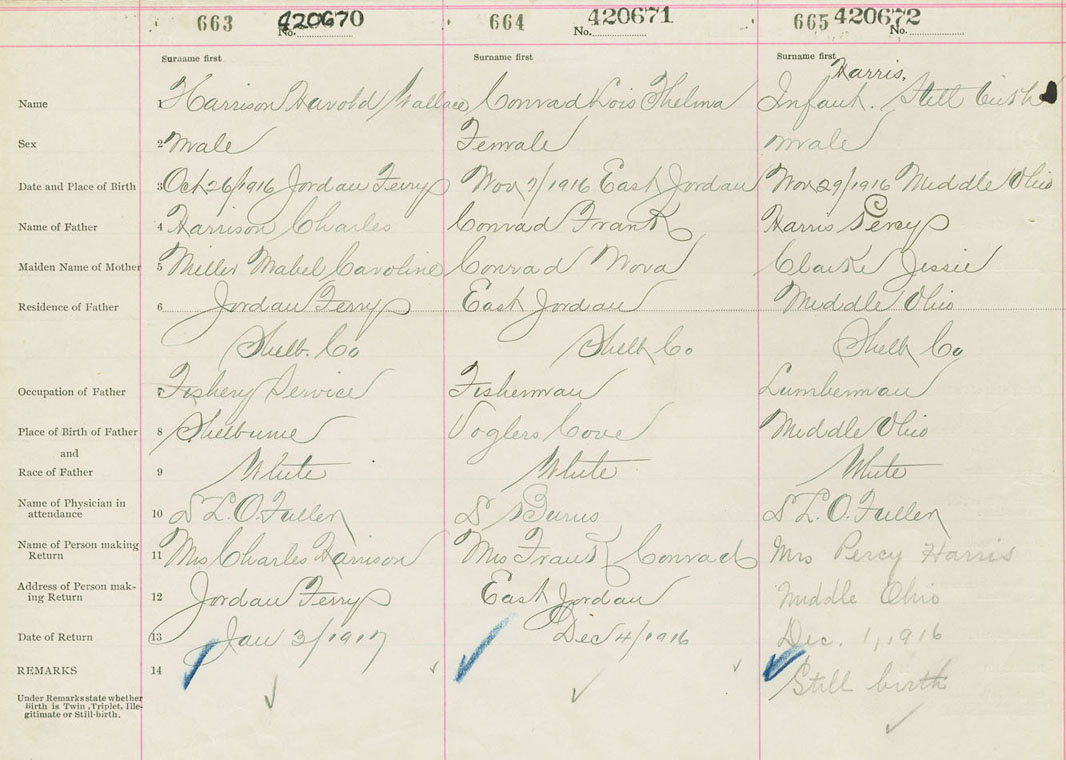 663 420670 664 420671 665 420672
No. No. No.
Surname first Surname first Surname first
Harris,
Name 1 Harrison Harold Wallace Conrad Lois Thelma Infant. Still birth
Sex 2 Male Female Male
Date and Place of Birth 3 Oct 26/1916 Jordan Ferry Nov 7/1916 East Jordan Nov 29/1916 Middle Ohio
Name of Father 4 Harrison Charles Conrad Frank Harris Percy
Maiden Name of Mother 5 Miller Mabel Caroline Conrad Nova Clarke Jessie
Residence of Father 6 Jordan Ferry East Jordan Middle Ohio
Shelb. Co Shelb Co Shelb Co
Occupation of Father 7 Fishery Service Fisherman Lumberman
Place of Birth of Father 8 Shelburne Voglers Cove Middle Ohio
and
Race of Father 9 White White White
Name of Physician in
attendance 10 Dr L. O. Fuller Dr Burns Dr L. O. Fuller
Name of Person making
Return 11 Mrs Charles Harrison Mrs Frank Conrad Mrs Percy Harris
Address of Person mak-
ing Return 12 Jordan Ferry East Jordan Middle Ohio
Date of Return 13 Jan 3/1917 Dec 4/1916 Dec. 1, 1916
REMARKS 14 Still birth
Under Remarks state whether
Birth is Twin, Triplet, Ille-
gitimate or Still-birth.